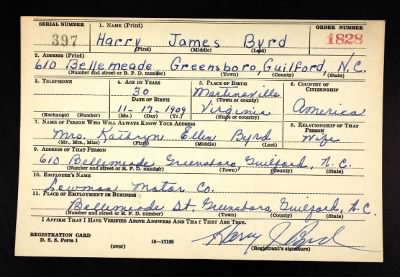 SERIAL NUMBER 1. NAME (Print) ORDER NUMBER
397 Harry James Byrd 1828
(First) (Middle) (Last)
2. ADDRESS (Print)
610 Bellemeade Greensboro, Guilford, N.C.
(Number and street or R. F. D. number) (Town) (County) (State)
3. TELEPHONE 4. AGE IN YEARS 5. PLACE OF BIRTH 6. COUNTRY OF CITIZENSHIP
30 Martinsville
DATE OF BIRTH (Town or county)
11-12-1909 Virginia America
(Exchange) (Number) (Mo.) (Day) (Yr.) (State or country)
7. NAME OF PERSON WHO WILL ALWAYS KNOW YOUR ADDRESS 8. RELATIONSHIP OF THAT PERSON
Mrs. Ellen Byrd Wife
(Mr., Mrs., Miss) (First) (Middle) (Last)
9. ADDRESS OF THAT PERSON
610 Bellemeade Greensboro Guilford, N.C.
(Number and street or R. F. D. number) (Town) (County) (State)
10. EMPLOYER'S NAME
Motor Co.
11. PLACE OF EMPLOYMENT OR BUSINESS
Bellemeade St. Greensboro, Guilford, N.C.
(Number and street or R. F. D. number) (Town) (County) (State)
I AFFIRM THAT I HAVE VERIFIED ABOVE ANSWERS AND THAT THEY ARE TRUE.
REGISTRATION CARD
D. S. S. Form 1 (over) 16-17105 Harry J Byrd
(Registrant's signature)